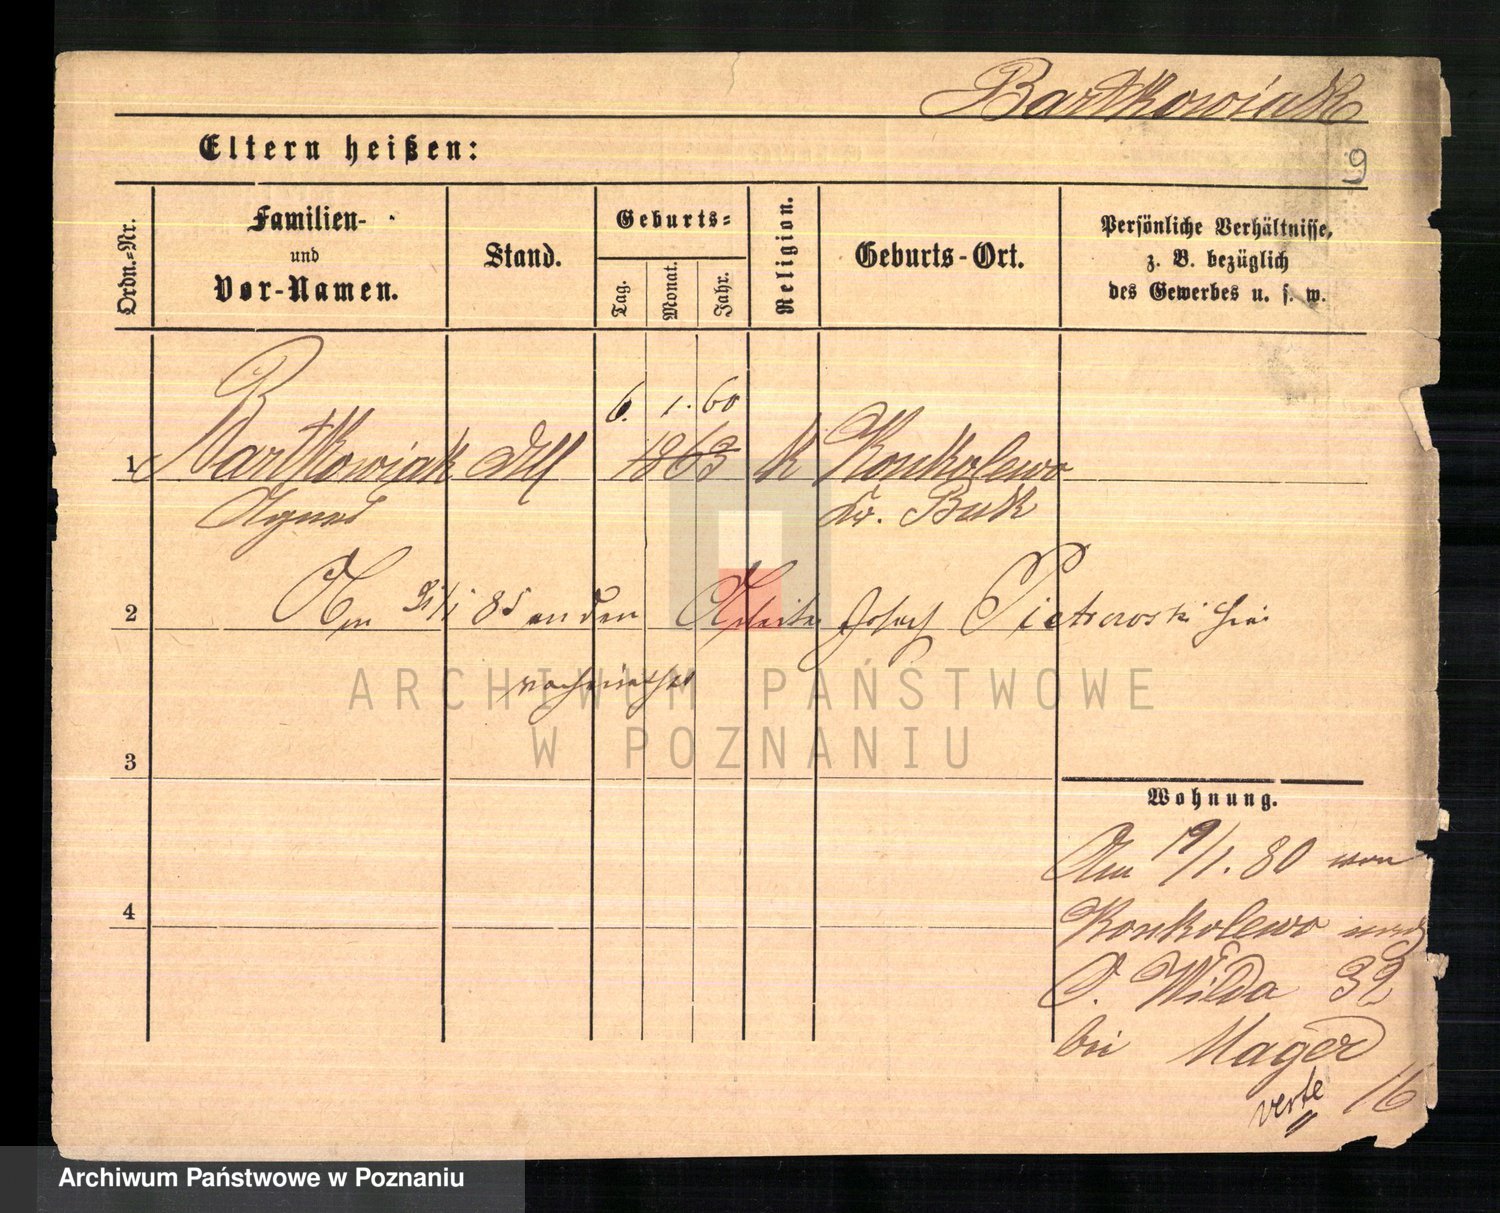 Bartkowiak
Eltern heißen:
9
Ordn.=Nr.
Familien-
und
Vor-Namen.
Stand.
Geburts=
Tag.
Monat.
Jahr.
Religion.
Geburts-Ort.
Persönliche Verhältnisse,
z. B. bezüglich
des Gewerbes u. s. w.
6. 1. 60
1 Bartkowiak 1863 k Konkolewo
Agnes Kr. Buk
2 Am /1 85 an den Arbeiter Josef Pietrowski hier
verheirathet
ARCHIWUM PAŃSTWOWE
W POZNANIU
3
Wohnung.
Am 19/1. 80 von
4 Konkolewo nach
O. Wilda 32
bei Mager
verte 16
Archiwum Państwowe w Poznaniu